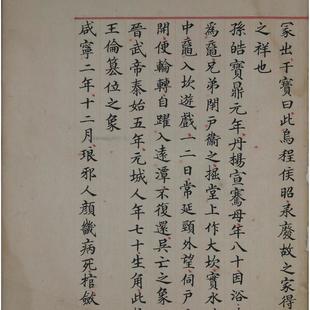 冢出干寶曰此烏程侯昭承廢故之家得
之祥也
孫皓寶鼎元年丹揚宣騫母年八十因浴
為黿兄弟閉戶衛之掘堂上作大坎實水
中黿入坎遊戲二日常延頸外望伺戶
開便輪轉自躍入遠潭不復還吳亡之象
晉武帝泰始五年元城人年七十生角此
王倫篡位之象
咸寧二年十二月琅邪人顏畿病死棺斂